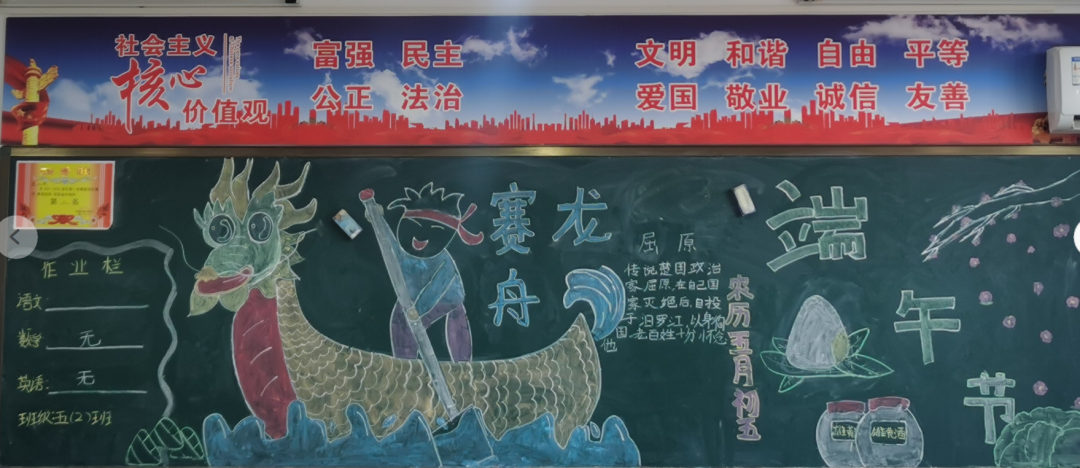 社会主义
核心
价值观
富强 民主
公正 法治
文明 和谐 自由 平等
爱国 敬业 诚信 友善
作业栏
语文:
数学: 无
英语: 无
班级:五(2)班
赛龙
舟
屈原
传说楚国政治
客屈原,在自己国
家灭绝后,自投
于汨罗江,以身殉
国,老百姓十分怀念
他
来历五月初五
端
午
节
雄黄酒